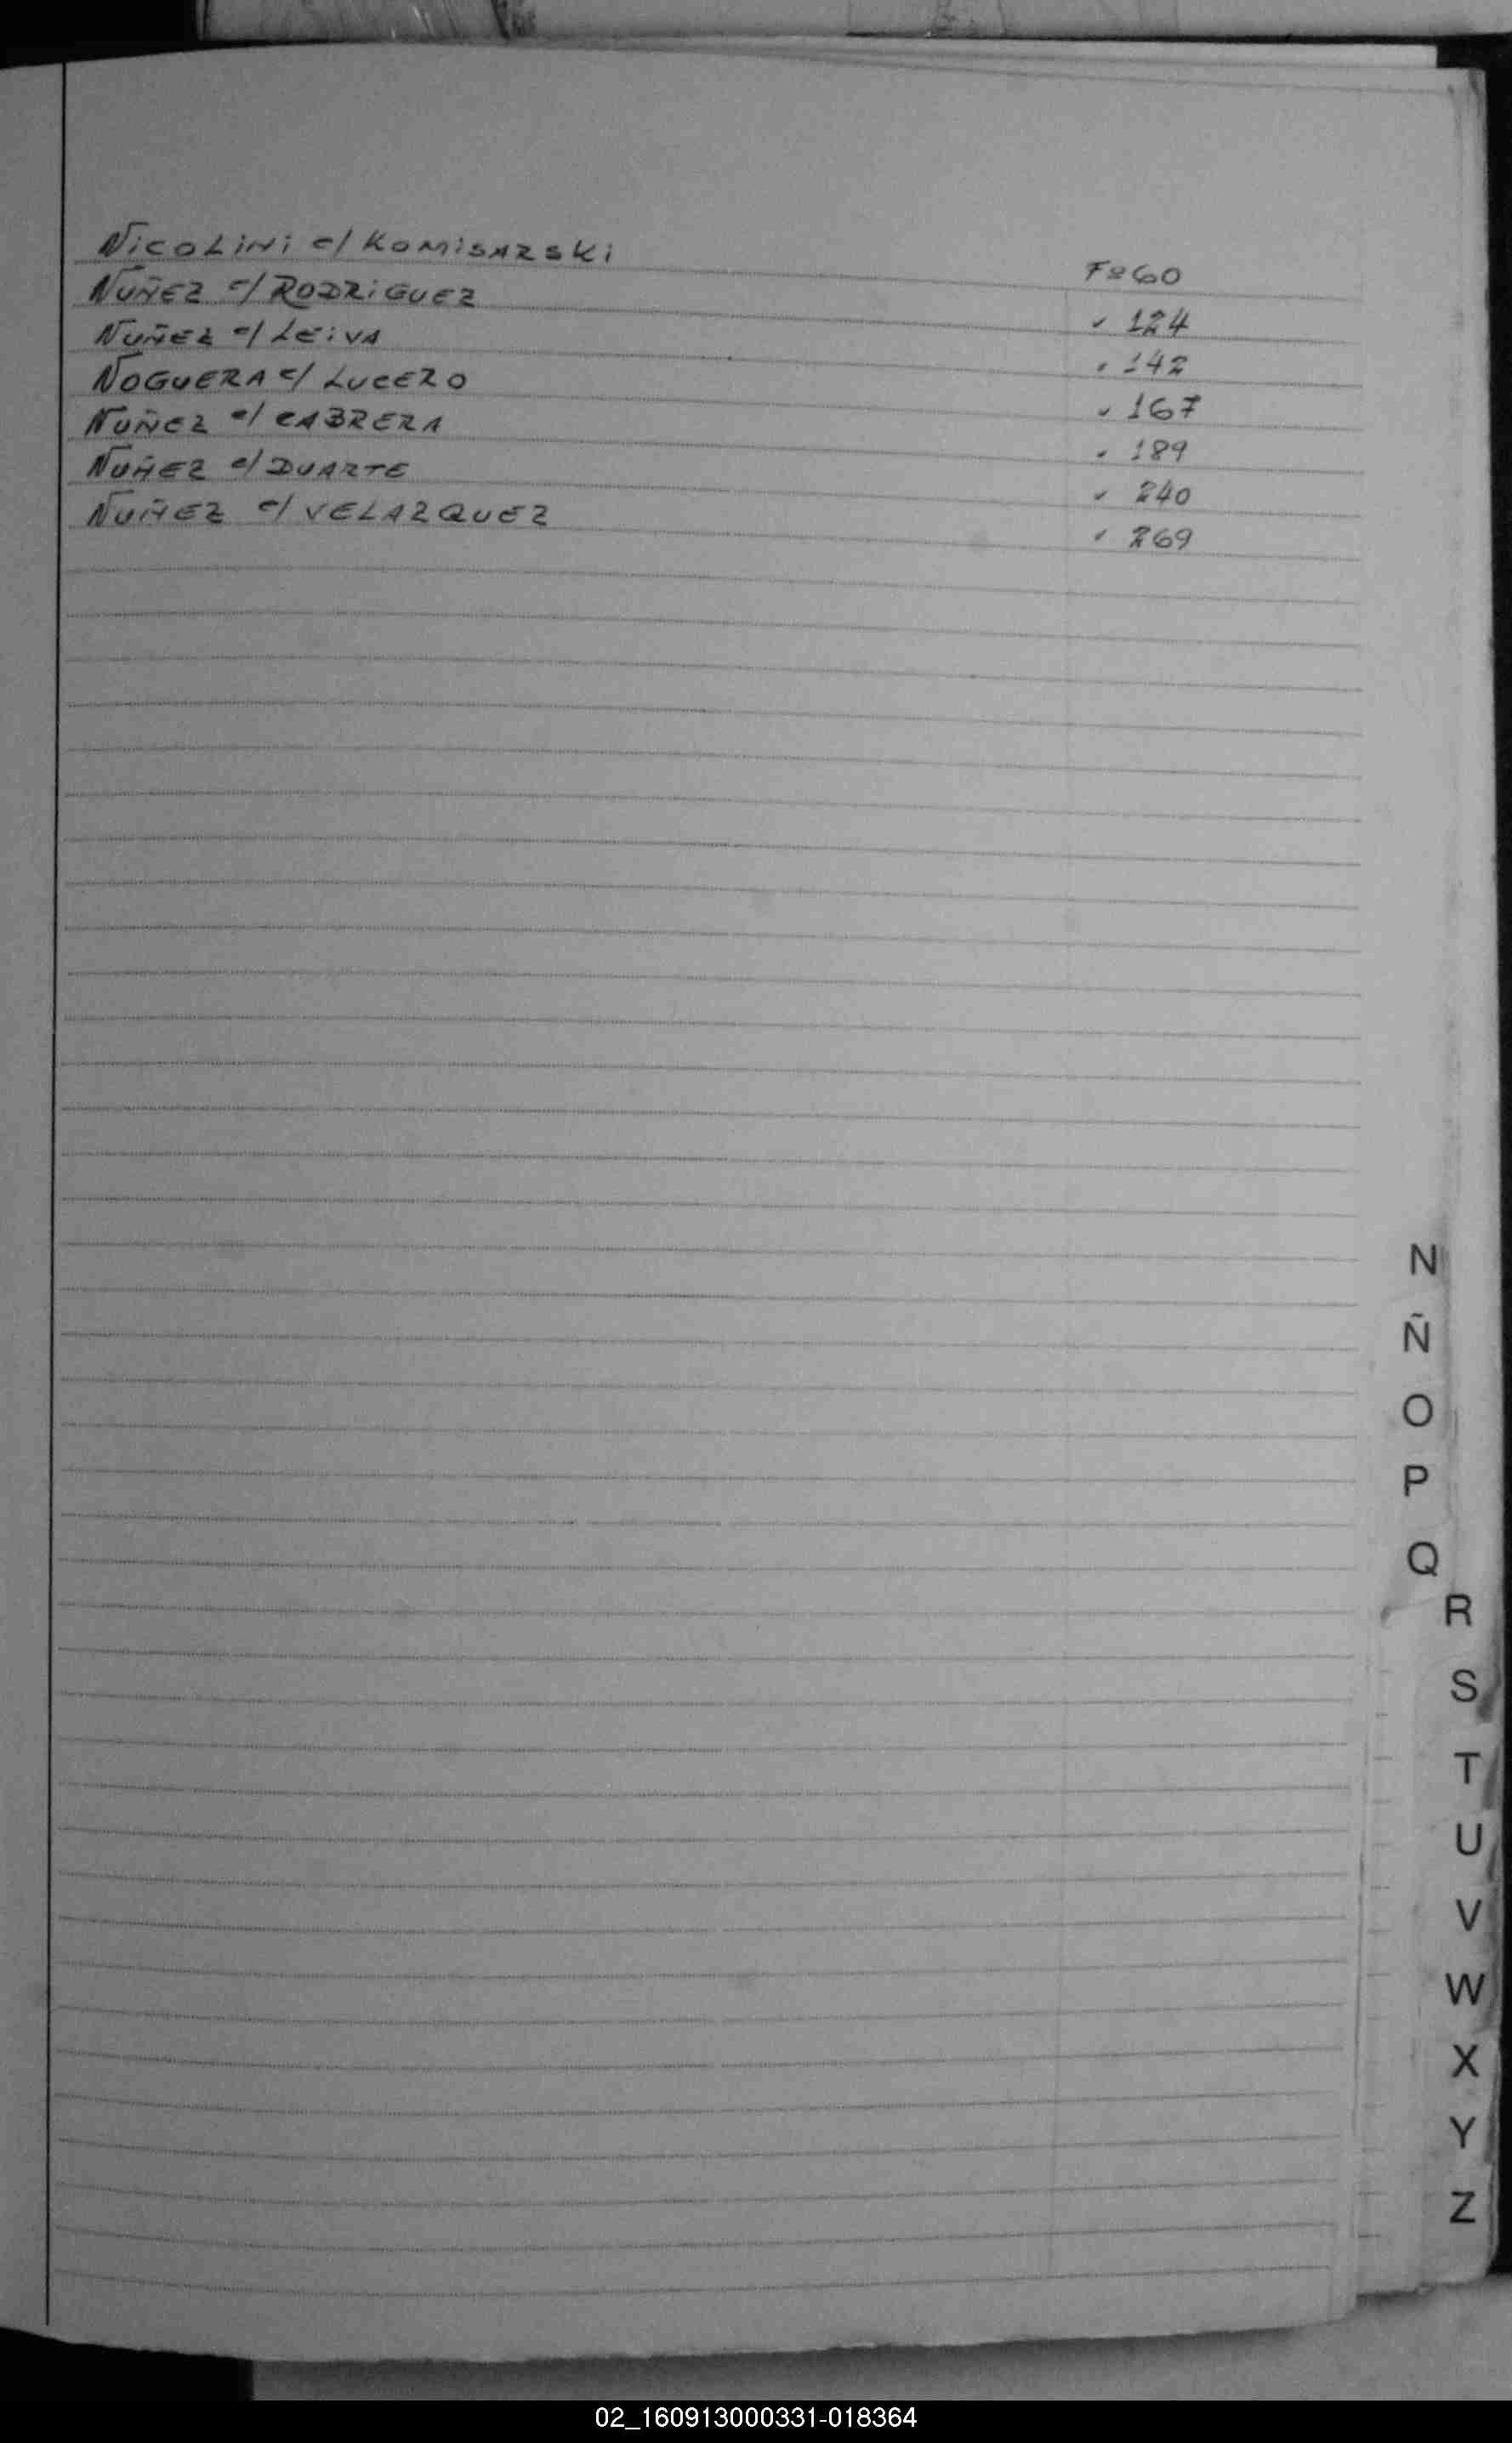 NicoLiNi c/ KOMiSARSKi Fº 60
NUÑEZ c/ RODRiGUEZ " 124
NUÑEZ c/ LEiVA " 142
NOGUERA c/ LUCERO " 167
NUÑEZ c/ CABRERA " 189
NUÑEZ c/ DUARTE " 240
NUÑEZ c/ VELAZQUEZ " 269
N
Ñ
O
P
Q
R
S
T
U
V
W
X
Y
Z
02_160913000331-018364